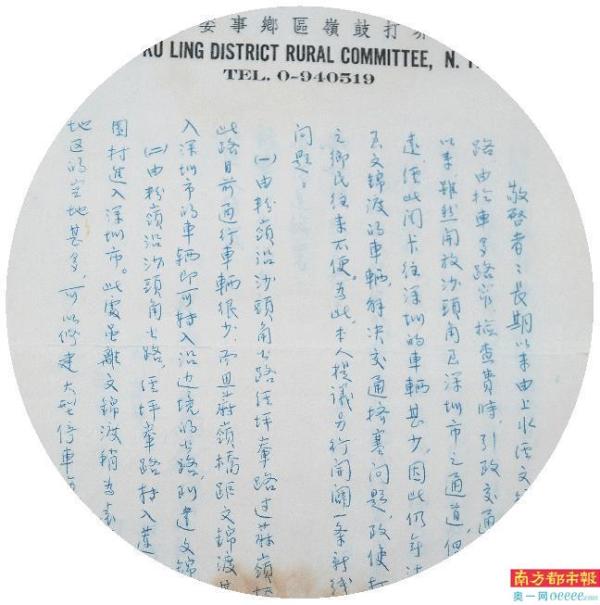 打鼓嶺區鄉事委
KU LING DISTRICT RURAL COMMITTEE, N. T.
TEL. 0-940519
敬啓者：長期以來由上水經文錦
路由於車多路窄，檢查費時，引致交通
以來，雖然開放沙頭角至深圳市之通道，但
遠，經此関卡往深圳的車輛甚少，因此仍無法
至文錦渡的車輛，解決交通擠塞问题，致使
之鄉民往來不便。為此，本人提議另行開闢一条新线
问题。
(一)由粉嶺沿沙頭角公路經坪輋路过蔴嶺橋
此路目前通行車輛很少，而且蔴嶺橋距文錦渡甚
入深圳市的車輛即可转入沿边境的公路，附達文錦
(二)由粉嶺沿沙頭角公路，經坪輋路转入蓮
围村进入深圳市。此處虽離文錦渡稍為
地区的空地甚多，可以修建大型停車
南方都市報
奥一网oeeee.com